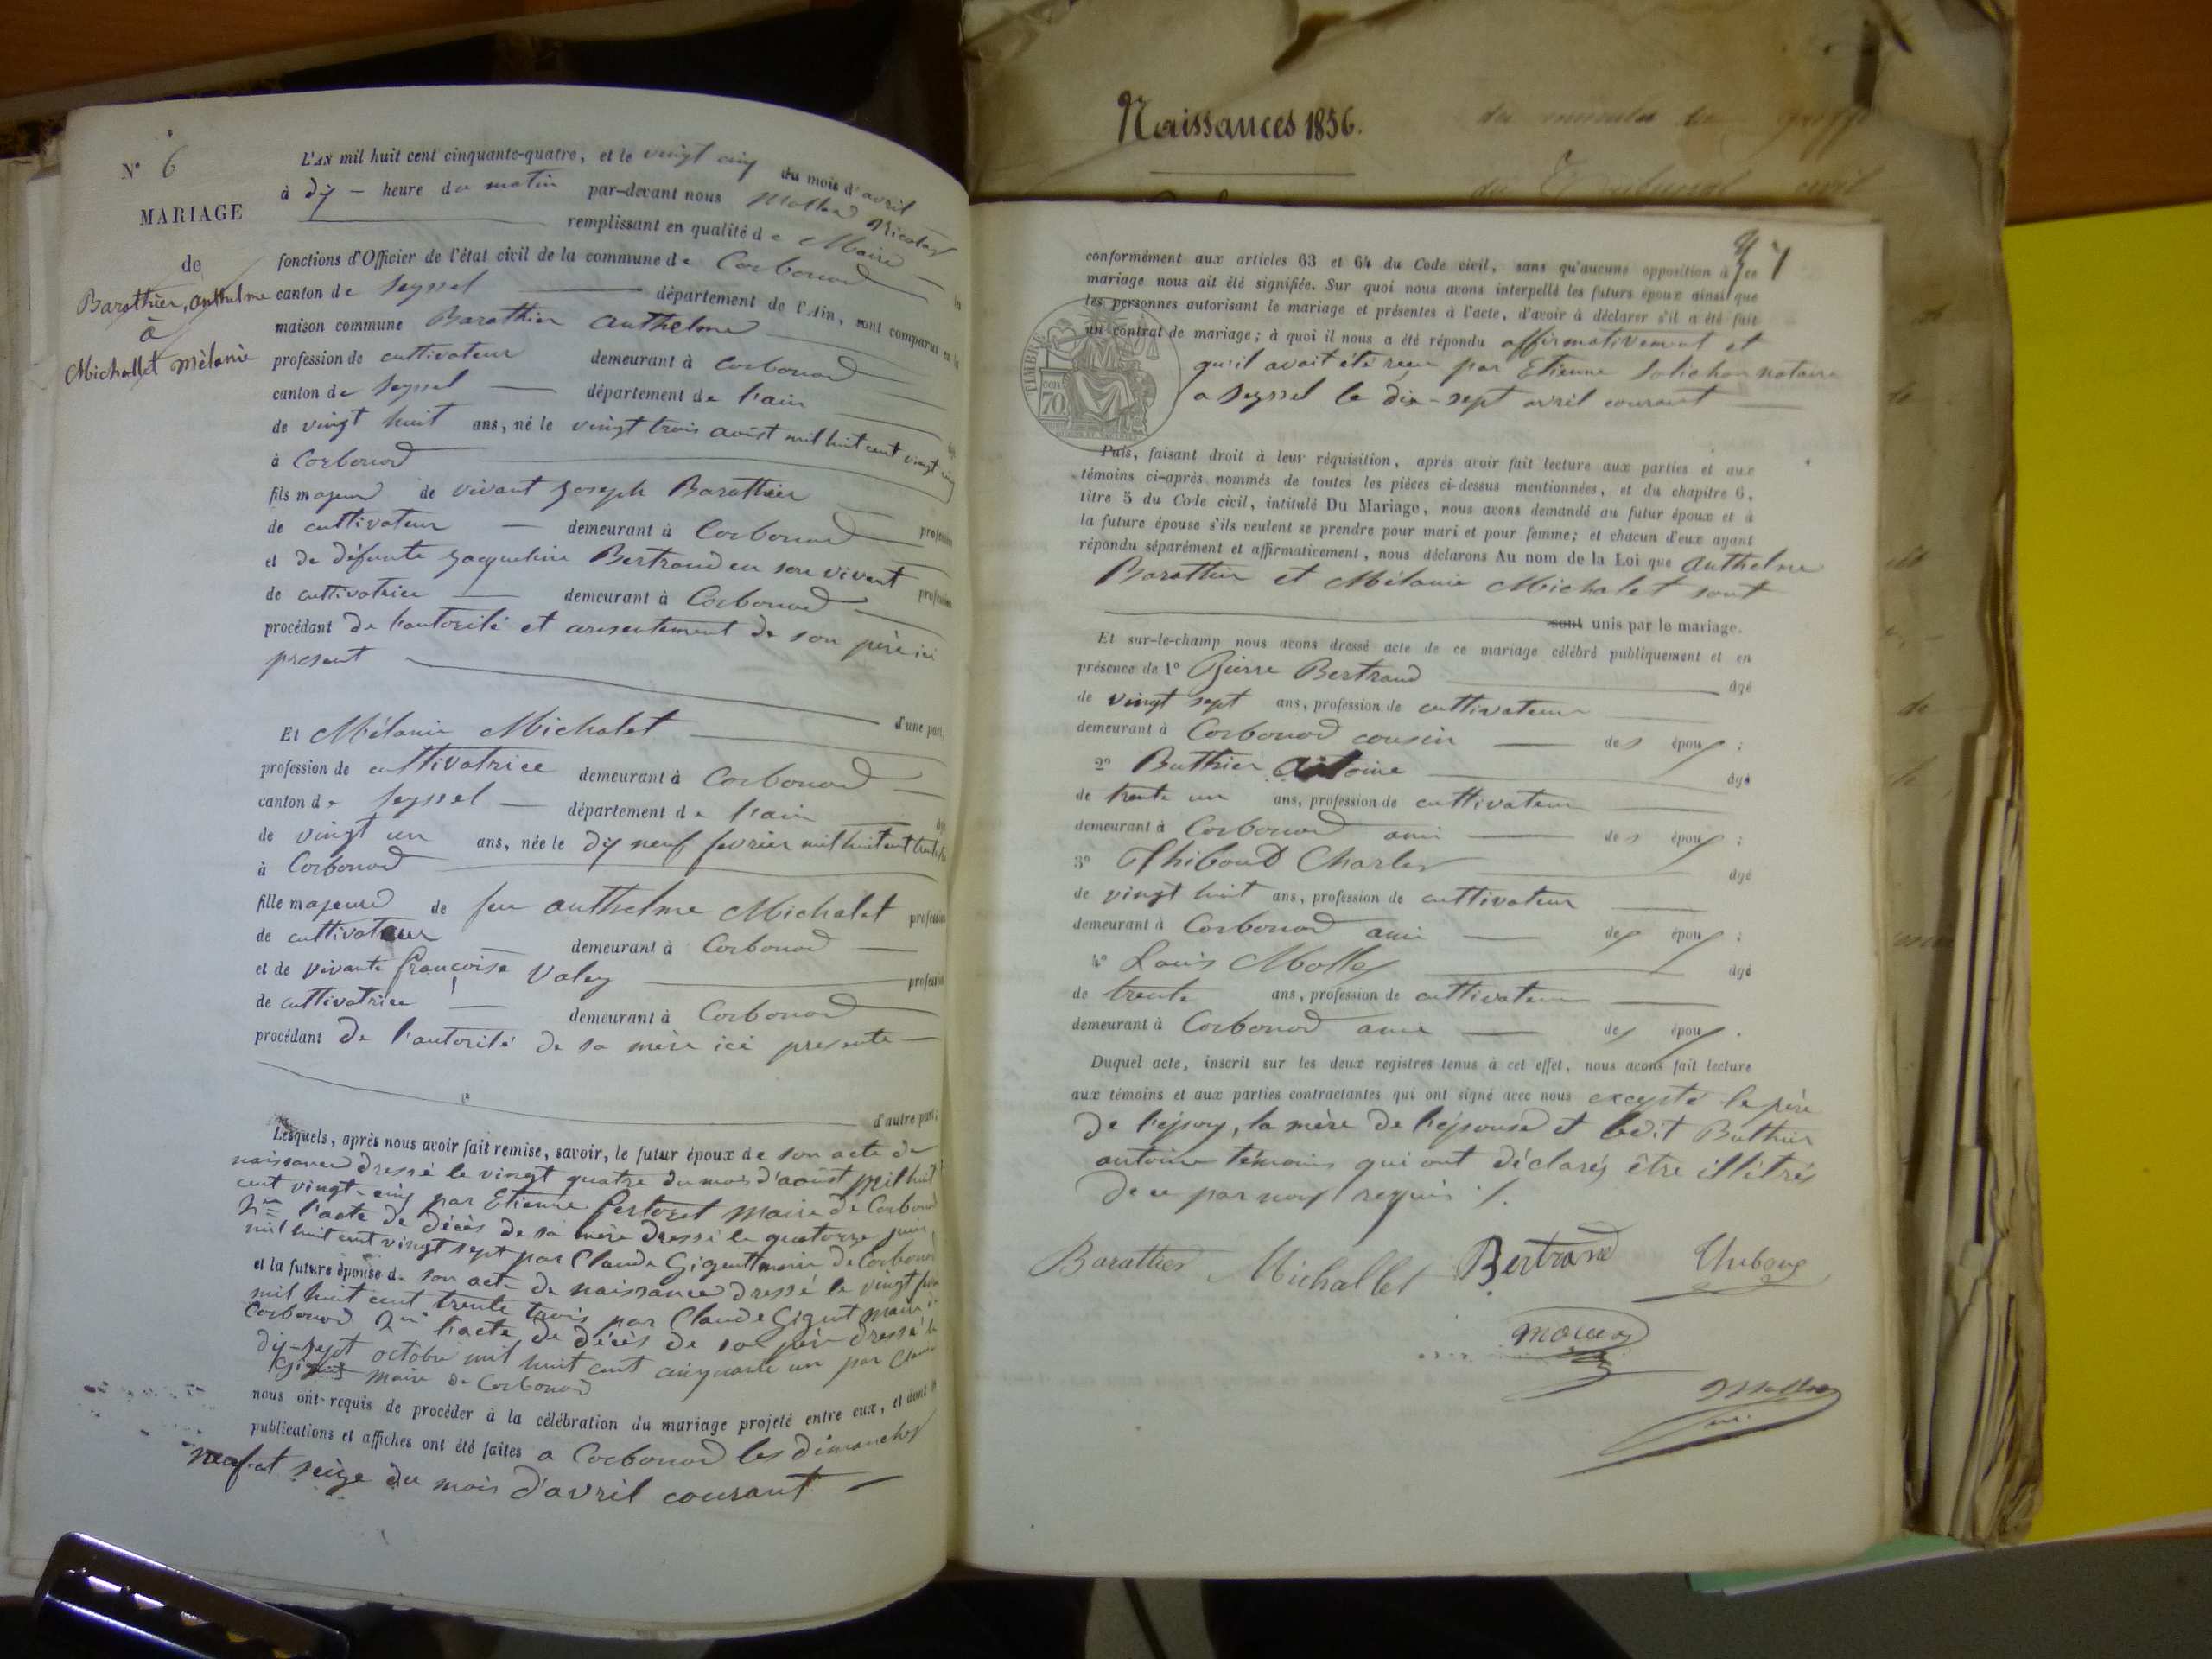 N° 6
MARIAGE
de
Barathier, Anthelme
à
Michallet Mélanie
L'AN mil huit cent cinquante-quatre, et le vingt cinq du mois d'avril
à dix — heure du matin par-devant nous Nicolas
remplissant en qualité de Maire
fonctions d'Officier de l'état civil de la commune de Corbonod
canton de Seyssel département de l'Ain, sont comparus en la
maison commune Barathier Anthelme
profession de cultivateur demeurant à Corbonod
canton de Seyssel — département de l'ain
de vingt huit ans, né le vingt trois août mil huit cent vingt cinq
à Corbonod
fils majeur de vivant Joseph Barathier
de cultivateur — demeurant à Corbonod profession
et de défunte Jacqueline Bertrand en son vivant
de cultivatrice — demeurant à Corbonod profession
procédant de l'autorité et consentement de son père ici
présent
d'une part;
Et Mélanie Michalet
profession de cultivatrice demeurant à Corbonod
canton de Seyssel — département de l'ain
de vingt un ans, née le dix neuf février mil huit cent
à Corbonod
fille majeure de feu anthelme Michalet profession
de cultivateur demeurant à Corbonod
et de vivante françoise profession
de cultivatrice demeurant à Corbonod
procédant de l'autorité de sa mère ici presente
d'autre part;
Lesquels, après nous avoir fait remise, savoir, le futur époux de son acte de
naissance dressé le vingt quatre du mois d'août mil huit
cent vingt-cinq par Etienne maire de Corbonod
l'acte de décès de sa mère dressé le quatorze juin
mil huit cent vingt sept par Claude Gigut maire de Corbonod
et la future épouse de son acte de naissance dressé le vingt
mil huit cent trente trois par Claude Gigut maire
Corbonod l'acte de décès de son père dressé le
dix-sept octobre mil huit cent cinquante un par Claude
Gigut maire de Corbonod
nous ont requis de procéder à la célébration du mariage projeté entre eux, et dont
publications et affiches ont été faites a Corbonod les dimanches
neuf et seize du mois d'avril courant —
Naissances 1856.
conformément aux articles 63 et 64 du Code civil, sans qu'aucune opposition à ce
mariage nous ait été signifiée. Sur quoi nous avons interpellé les futurs époux ainsi que
les personnes autorisant le mariage et présentes à l'acte, d'avoir à déclarer s'il a été fait
un contrat de mariage; à quoi il nous a été répondu affirmativement et
qu'il avait été reçu par Etienne notaire
a Seyssel le dix-sept avril courant
TIMBRE
70
Puis, faisant droit à leur réquisition, après avoir fait lecture aux parties et aux
témoins ci-après nommés de toutes les pièces ci-dessus mentionnées, et du chapitre 6,
titre 5 du Code civil, intitulé Du Mariage, nous avons demandé au futur époux et à
la future épouse s'ils veulent se prendre pour mari et pour femme; et chacun d'eux ayant
répondu séparément et affirmativement, nous déclarons Au nom de la Loi que Anthelme
Barathier et Mélanie Michalet sont
sont unis par le mariage.
Et sur-le-champ nous avons dressé acte de ce mariage célébré publiquement et en
présence de 1° Pierre Bertrand âgé
de vingt sept ans, profession de cultivateur
demeurant à Corbonod cousin — des époux;
2° Buthier Antoine âgé
de trente un ans, profession de cultivateur
demeurant à Corbonod ami — des époux;
3° Thiboud Charles âgé
de vingt huit ans, profession de cultivateur
demeurant à Corbonod ami — des époux;
4° Louis Mollex âgé
de trente ans, profession de cultivateur
demeurant à Corbonod ami — des époux.
Duquel acte, inscrit sur les deux registres tenus à cet effet, nous avons fait lecture
aux témoins et aux parties contractantes qui ont signé avec nous excepté le père
de l'époux, la mère de l'épouse et ledit Buthier
antoine témoins qui ont déclarés être illitrés
de ce par nous requis
Barathier Michallet Bertrand